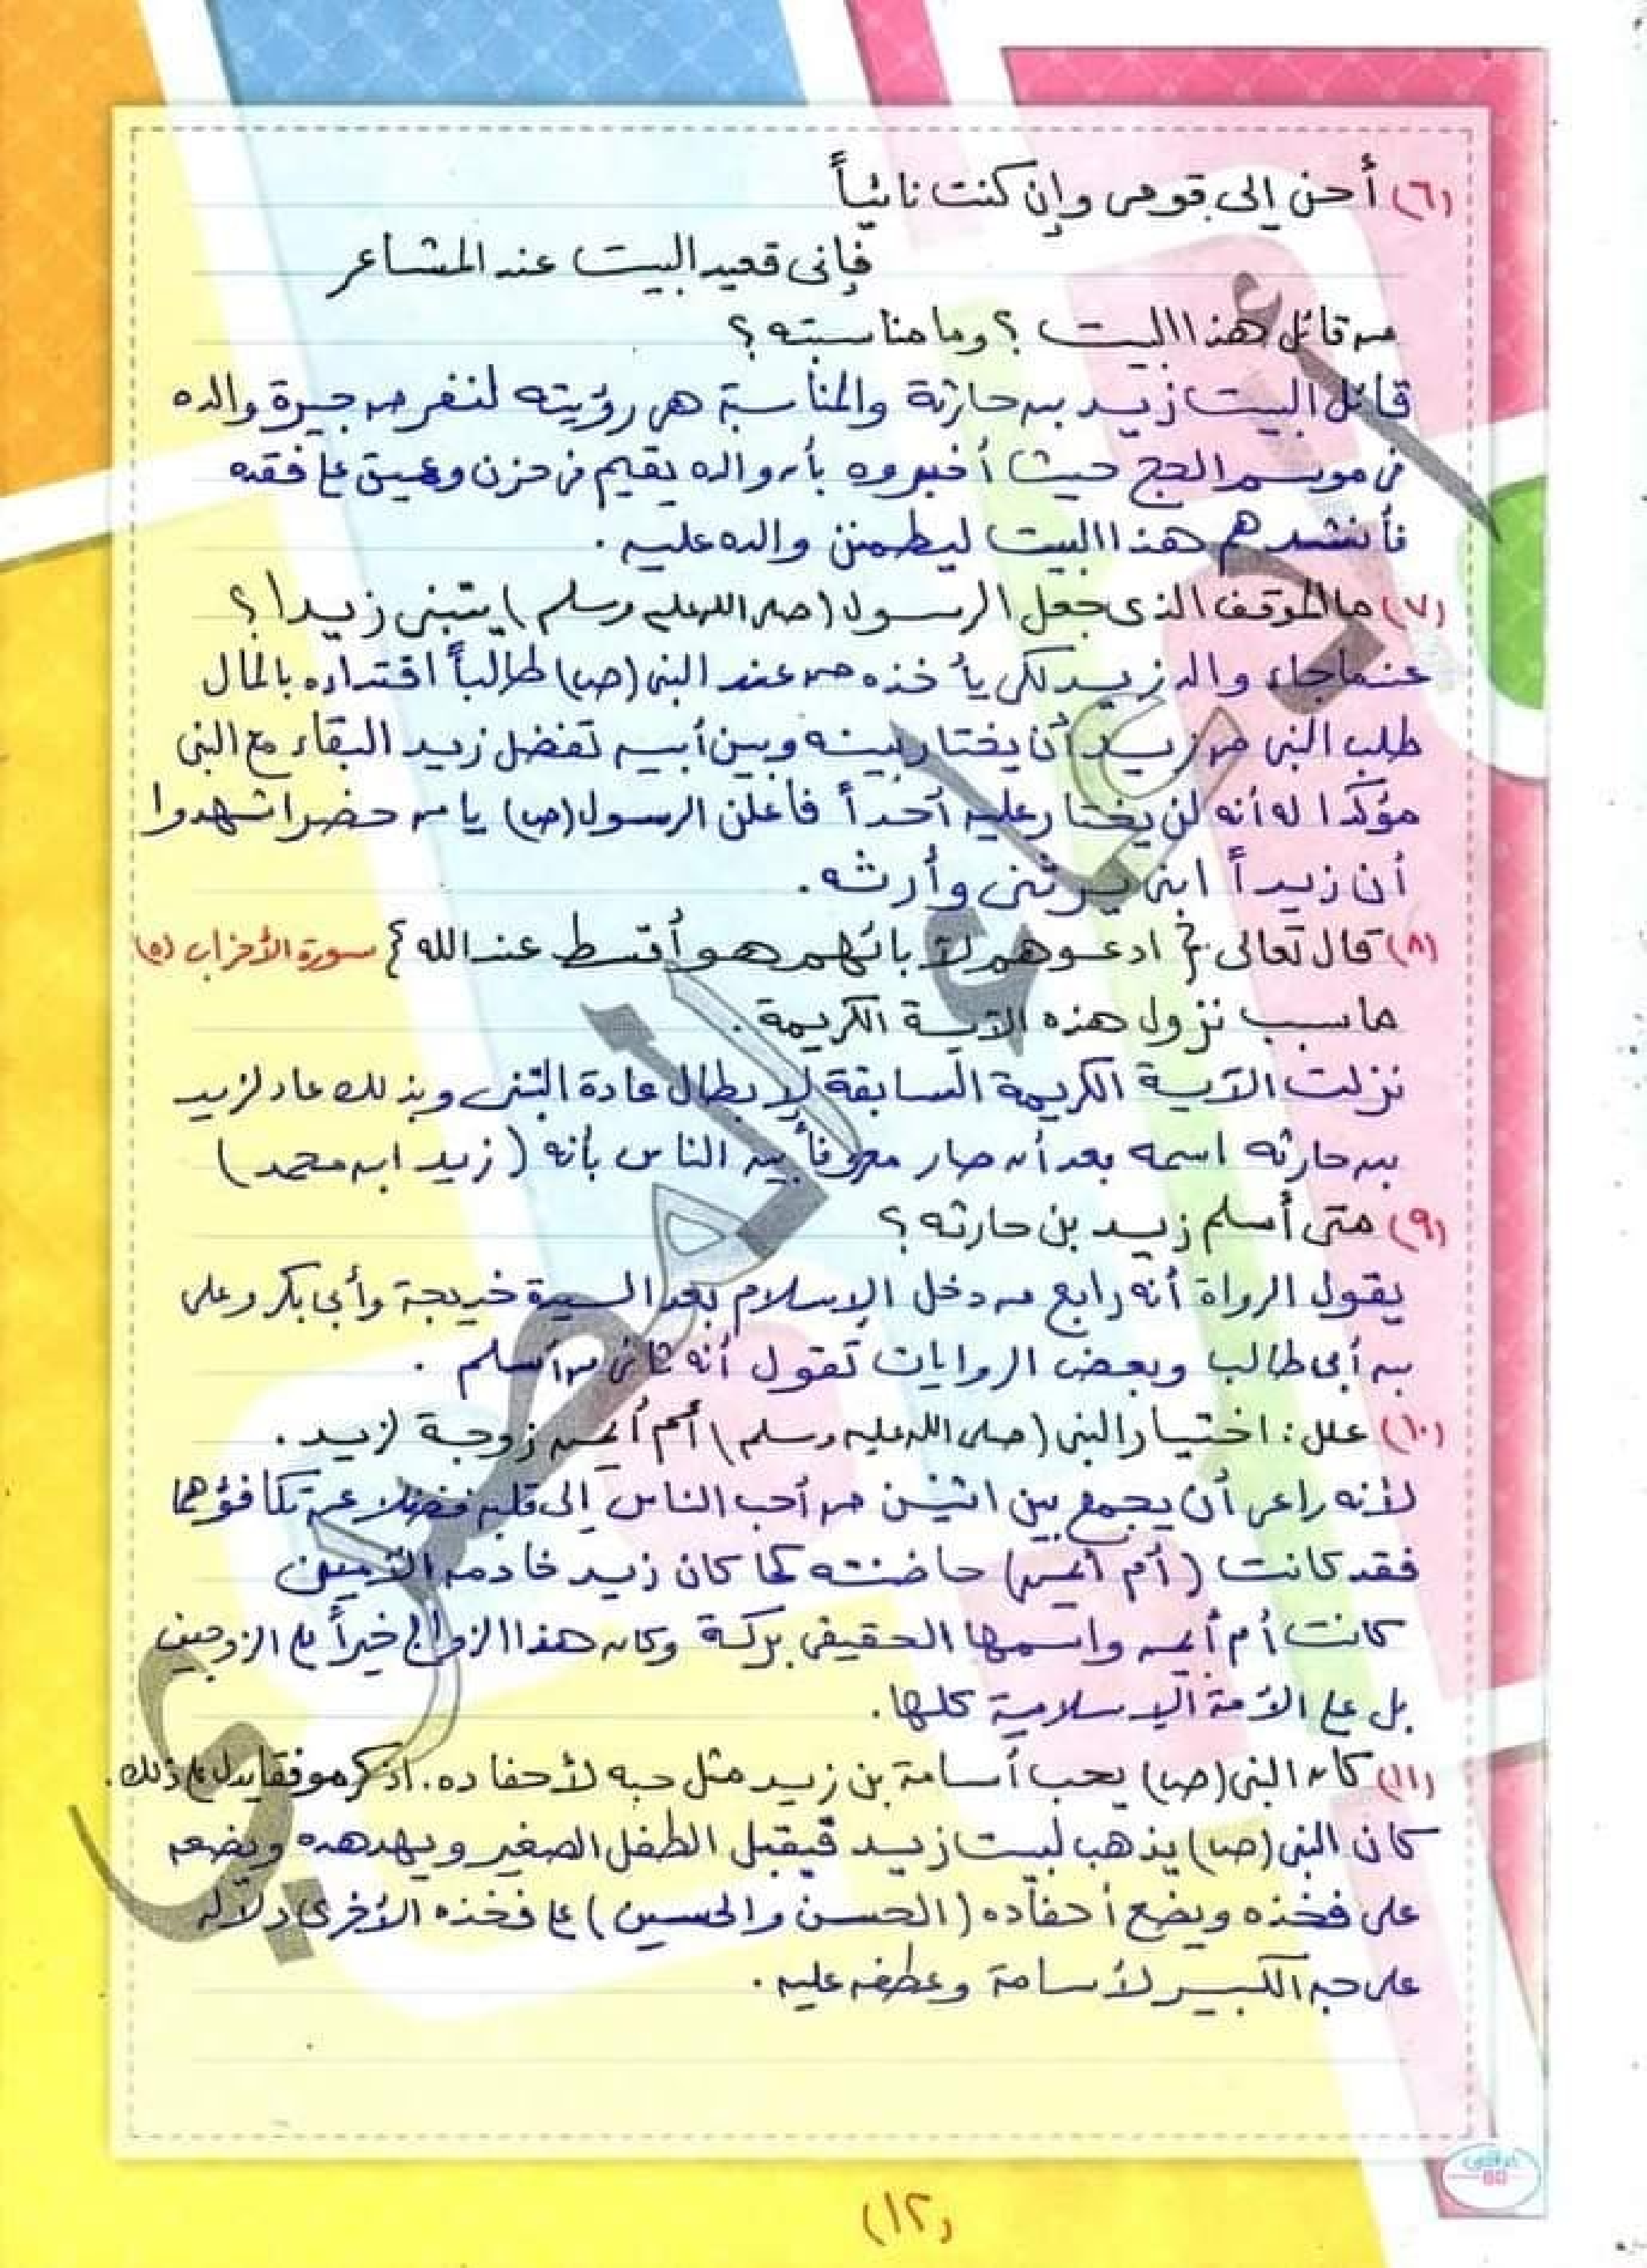 (٦) أحن إلى قومى وإن كنت نائياً
فإنى قعيد البيت عند المشاعر
من قائل هذا البيت ؟ وما مناسبته ؟
قائل البيت زيد بن حارثة والمناسبة هى رؤيته لنفر من جيرة والده
فى موسم الحج حيث أخبروه بأن والده يقيم فى حزن وعميق على فقده
فأنشدهم هذا البيت ليطمئن والده عليه .
(٧) ما الموقف الذى جعل الرسول (صلى الله عليه وسلم) يتبنى زيدا ؟
عندما جاء والد زيد لكى يأخذه من عند النبى (ص) طالباً افتداره بالمال
طلب النبى من زيد أن يختار بينه وبين أبيه تفضل زيد البقاء مع النبى
مؤكدا له أنه لن يختار عليه أحداً فأعلن الرسول (ص) يا من حضر اشهدوا
أن زيداً ابنى يرثنى وأرثه .
(٨) قال تعالى { ادعوهم لآبائهم هو أقسط عند الله } سورة الأحزاب (٥)
ما سبب نزول هذه الآية الكريمة .
نزلت الآية الكريمة السابقة لإبطال عادة التبنى وبذلك عاد لزيد
بن حارثه اسمه بعد أن صار معروفاً بين الناس بأنه (زيد ابن محمد)
(٩) متى أسلم زيد بن حارثه ؟
يقول الرواة أنه رابع من دخل الإسلام بعد السيدة خديجة وأبى بكر وعلى
بن أبى طالب وبعض الروايات تقول أنه ثانى من أسلم .
(١٠) علل : اختيار النبى (صلى الله عليه وسلم) أم أيمن زوجة لزيد .
لأنه راعى أن يجمع بين اثنين من أحب الناس إلى قلبه فضلا عن تكافؤهما
فقد كانت (أم أيمن) حاضنته كما كان زيد خادمه الأمين
كانت أم أيمن واسمها الحقيقى بركة وكان هذا الزواج خيراً على الزوجين
بل على الأمة الإسلامية كلها .
(١١) كان النبى (ص) يحب أسامة بن زيد مثل حبه لأحفاده . اذكر موقفا يدل على ذلك .
كان النبى (ص) يذهب لبيت زيد فيقبل الطفل الصغير ويهدهده ويضعه
على فخذه ويضع أحفاده (الحسن والحسين) على فخذه الأخرى دلاله
على حبه الكبير لأسامة وعطفه عليه .
(١٢)